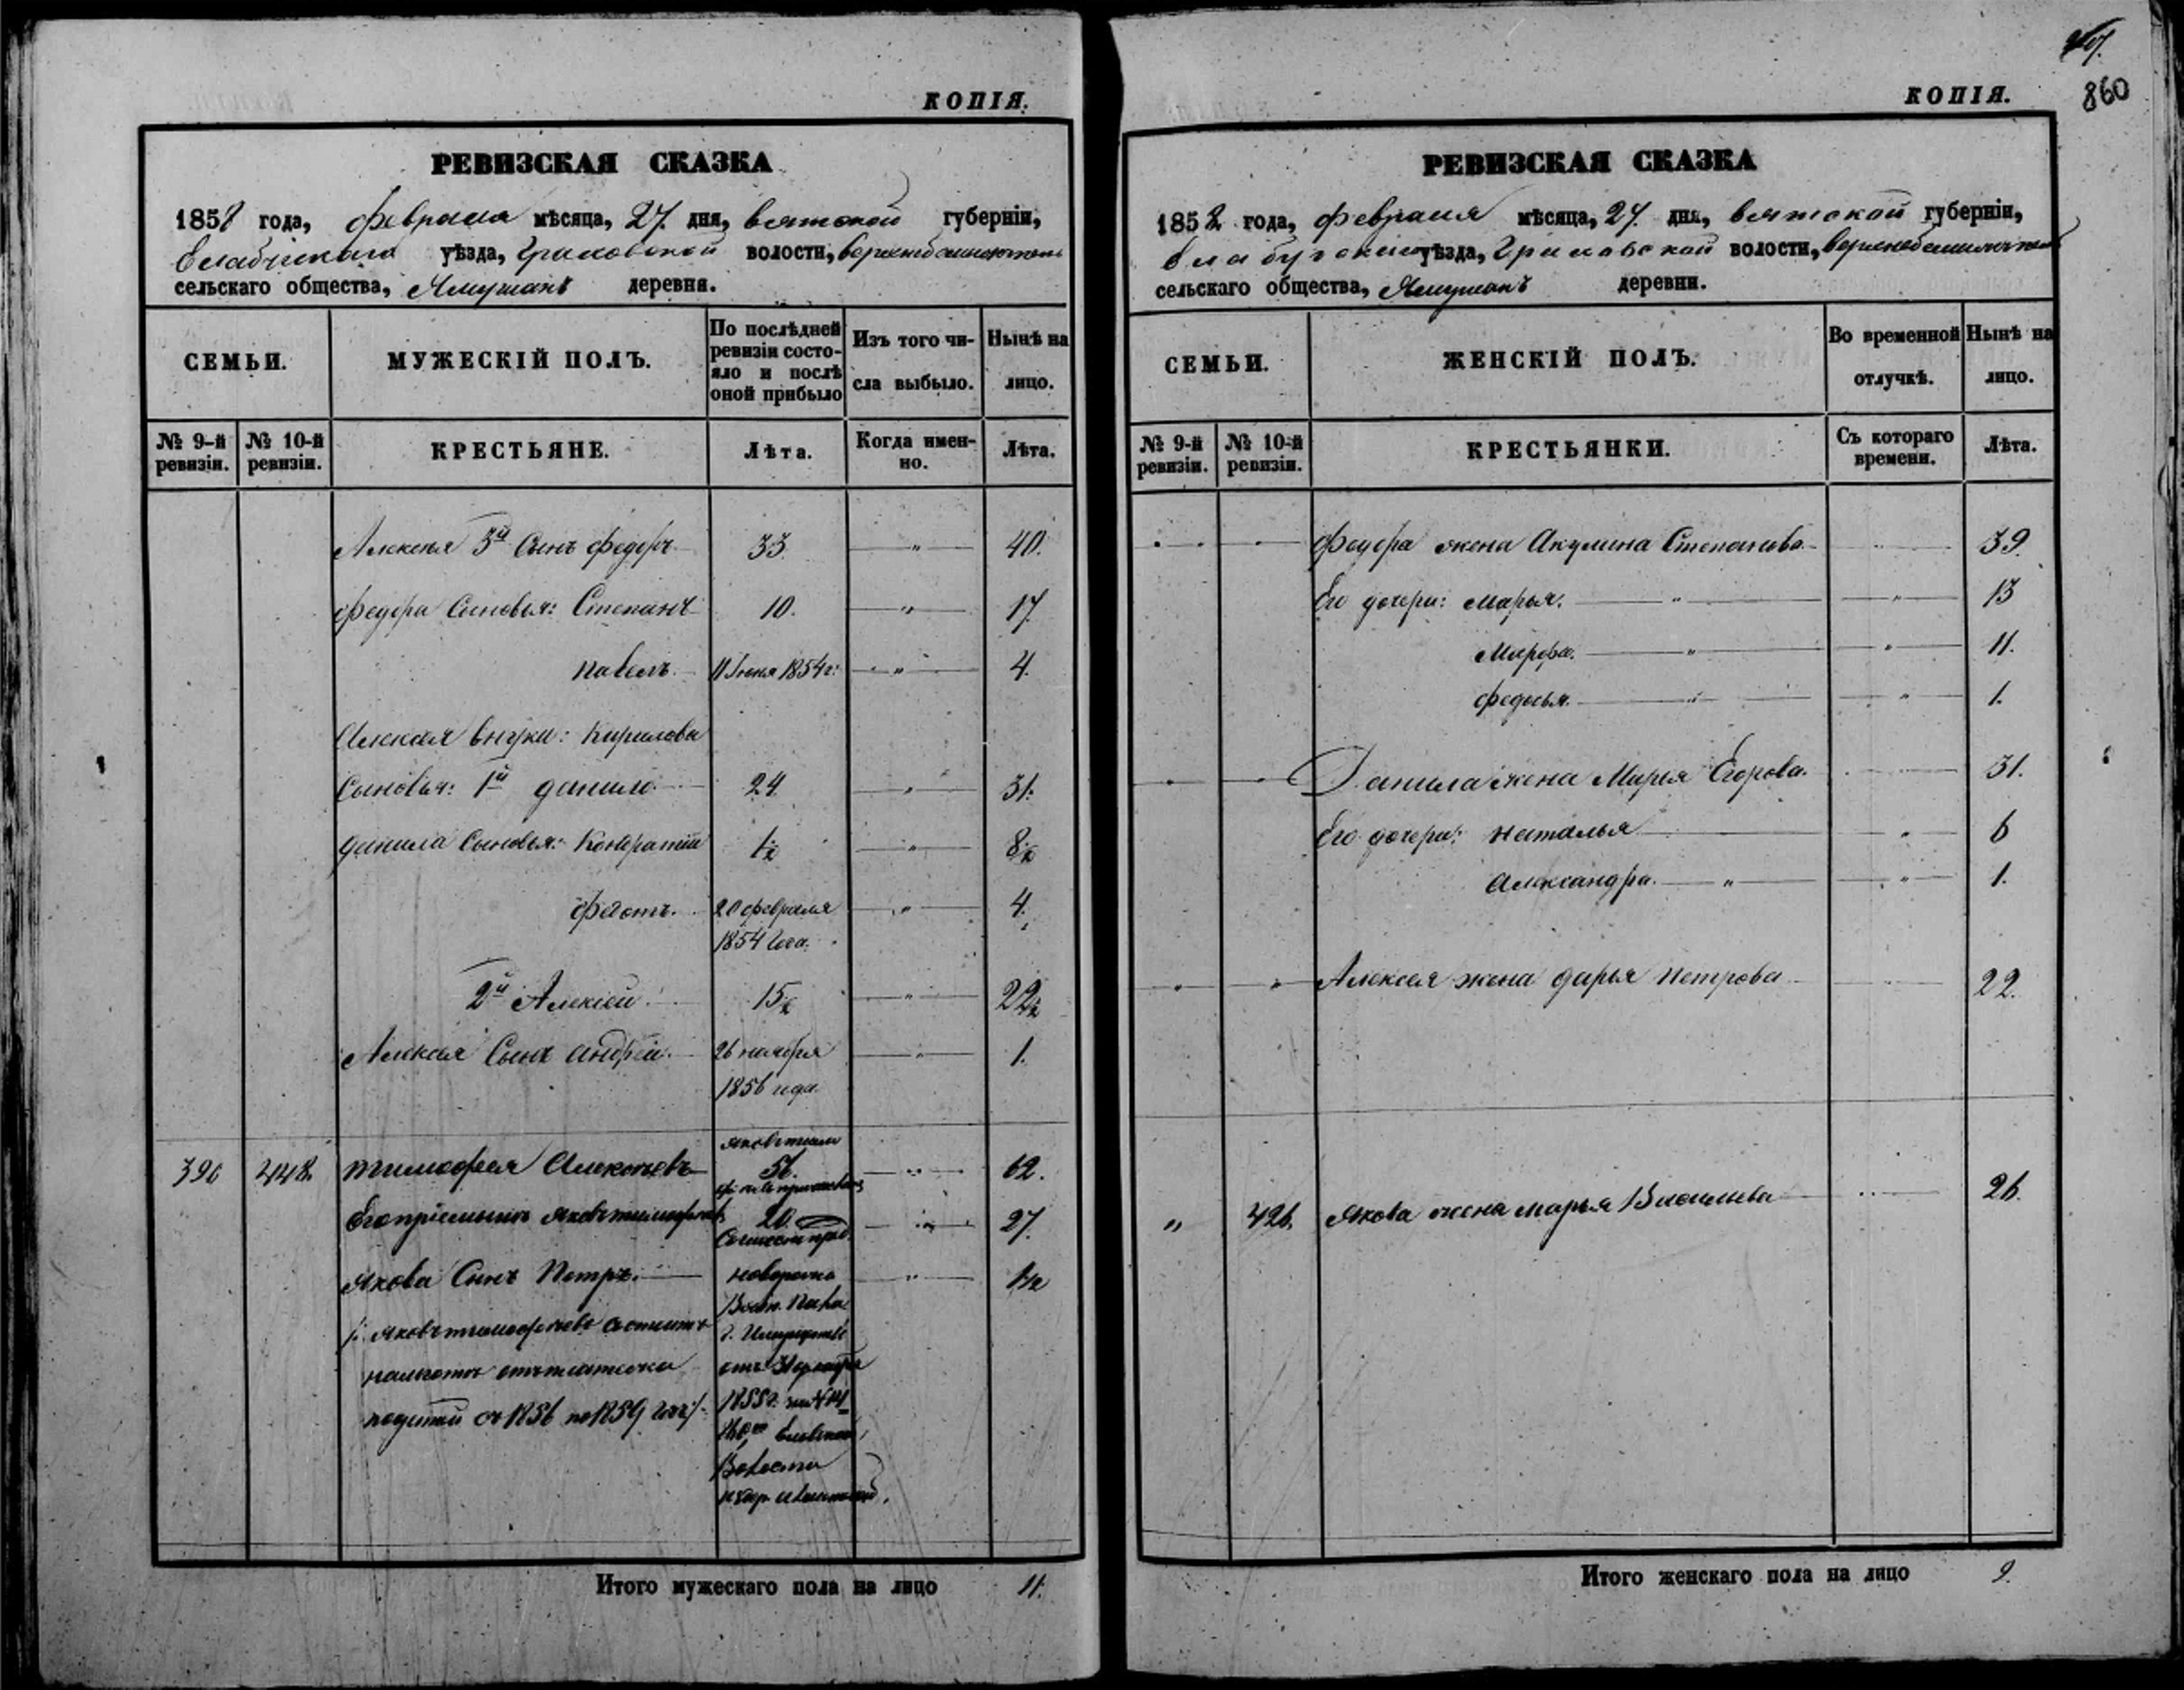 КОПІЯ.
РЕВИЗСКАЯ СКАЗКА
1858 года, февраля мѣсяца, 27. дня, вятской губерніи,
Елабужскаго уѣзда, Граховской волости,
сельскаго общества, Ямушанъ деревни.
СЕМЬИ.
МУЖЕСКІЙ ПОЛЪ.
По послѣдней ревизіи состояло и послѣ оной прибыло
Изъ того числа выбыло.
Нынѣ на лицо.
№ 9-й ревизіи.
№ 10-й ревизіи.
КРЕСТЬЯНЕ.
Лѣта.
Когда именно.
Лѣта.
Алексѣя 3й Сынъ федоръ 33 " 40.
федора Сыновья: Степанъ 10. " 17.
павелъ 11 Іюня 1854 г: " 4.
Алексѣя внуки: Кирилова
Сыновья: 1й данило 24 " 31.
данила Сыновья: Кондратій 1½ " 8½
федотъ. 20 февраля " 4.
1854 года.
2й Алексѣй. 15½ " 22½
Алексѣя Сынъ андрей. 26 ноября " 1.
1856 года.
396 448. тимофея Алексѣевъ 56. " 62.
Его пріемышъ Яковъ тимофеевъ 20. " 27.
Якова Сынъ Петръ. " 1½
Яковъ тимофеевъ состоитъ
на льготѣ отъ платежа
податей съ 1856 по 1859 годъ
1855 г.
Волости
Итого мужескаго пола на лицо 11.
860
КОПІЯ.
РЕВИЗСКАЯ СКАЗКА
1858 года, февраля мѣсяца, 27. дня, вятской губерніи,
Елабужскаго уѣзда, Граховской волости,
сельскаго общества, Ямушанъ деревни.
СЕМЬИ.
ЖЕНСКІЙ ПОЛЪ.
Во временной отлучкѣ.
Нынѣ на лицо.
№ 9-й ревизіи.
№ 10-й ревизіи.
КРЕСТЬЯНКИ.
Съ котораго времени.
Лѣта.
федора жена Акулина Степанова 39
Его дочери: марья. " " 13
Марфа. " " 11.
федосья. " " 1.
Данила жена Марья Егорова. 31.
Его дочери: наталья " 6
Александра. " " 1.
" " Алексѣя жена дарья петрова 22.
" 426. Якова жена марья Васильева 26.
Итого женскаго пола на лицо 9.